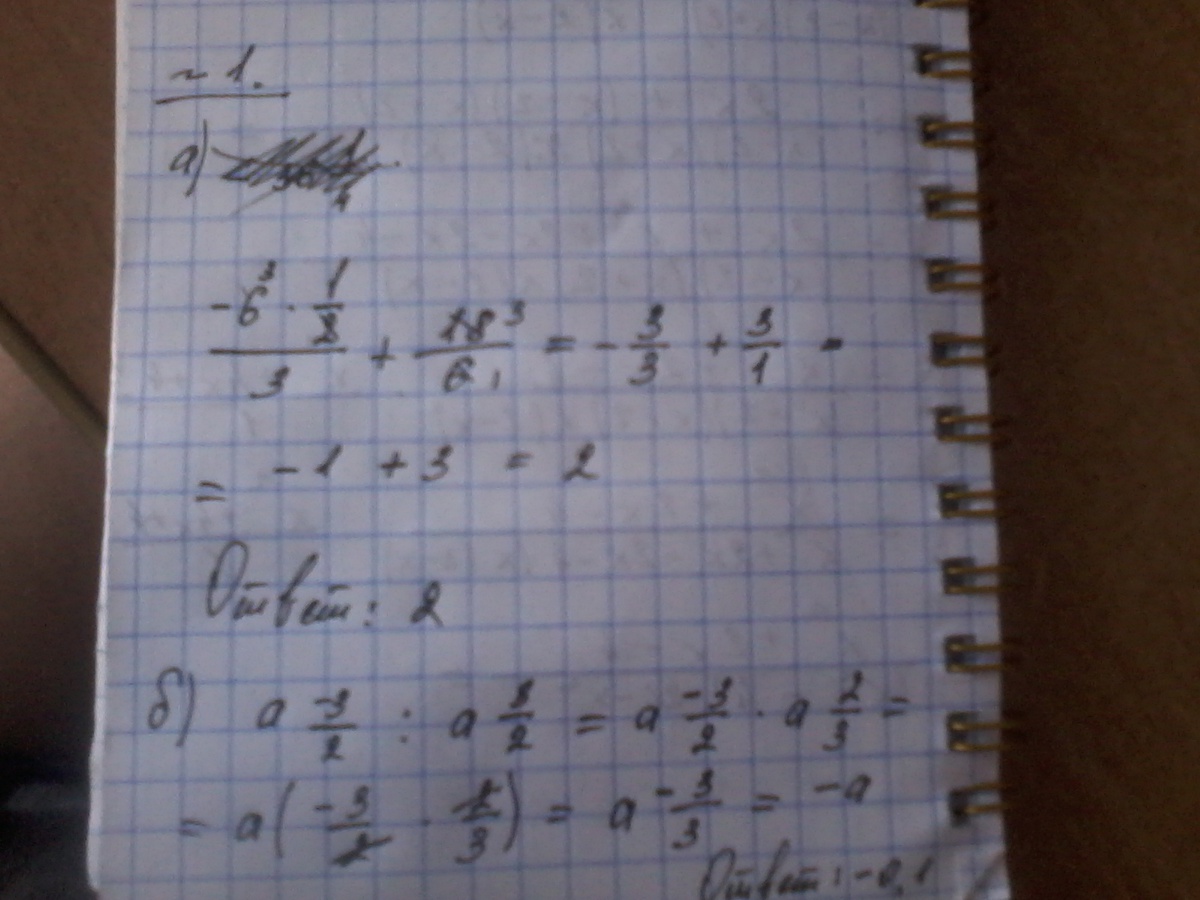 ~ 1.
а)
(-6³ · 1/2)/3 + 18³/6₁ = - 3/3 + 3/1 =
= -1 + 3 = 2
Ответ: 2
б) a -3/2 : a 3/2 = a -3/2 · a 2/3 =
= a ( -3/2 · 2/3 ) = a -3/3 = -a
Ответ: -0,1